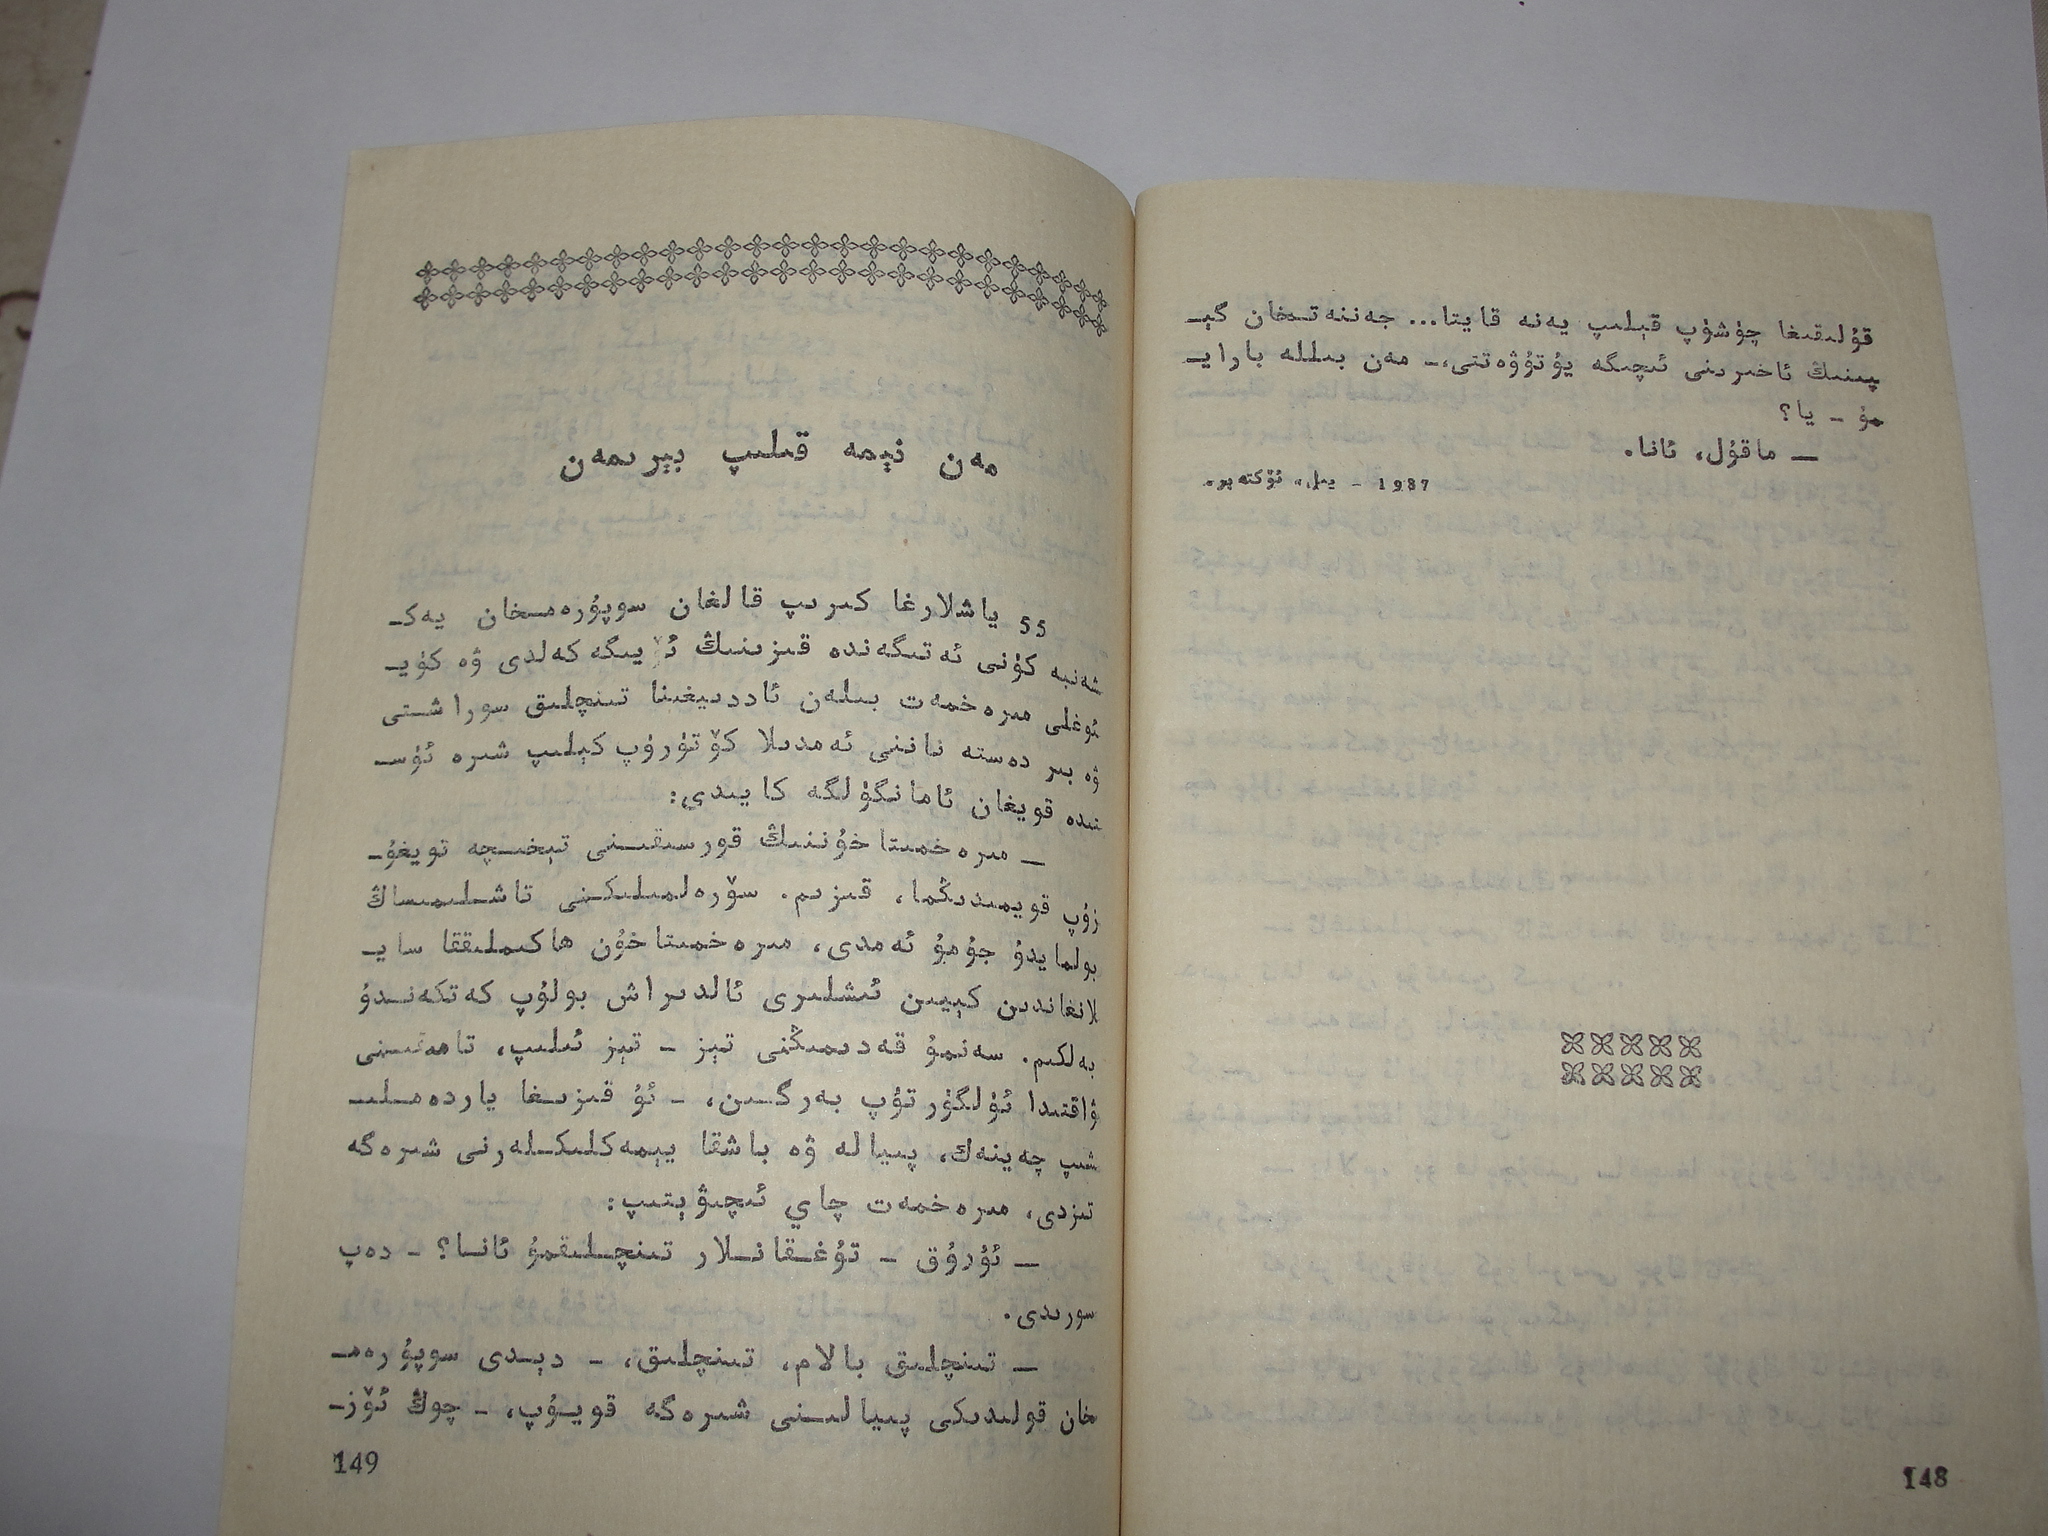 قۇلىقىغا چۈشۈپ قېلىپ يەنە قايتا... جەننەتخان گې-
پىنىڭ ئاخىرىنى ئىچىگە يۇتۇۋەتتى،- مەن بىللە باراي-
مۇ - يا؟
— ماقۇل، ئانا.
1987 - يىل، ئۆكتەبىر.
148
مەن نېمە قىلىپ بېرىمەن
55 ياشلارغا كىرىپ قالغان سوپۇرەمخان يەك-
شەنبە كۈنى ئەتىگەندە قىزىنىڭ ئۆيىگە كەلدى ۋە كۈي-
ئوغلى مىرەخمەت بىلەن ئاددىيغىنا تىنچلىق سوراشتى
ۋە بىر دەستە ناننى ئەمدىلا كۆتۈرۈپ كېلىپ شىرە ئۈس-
تىدە قويغان ئامانگۈلگە كايىدى:
— مىرەخمىتاخۇننىڭ قورسىقىنى تېخىچە تويغۇ-
زۇپ قويمىدىڭما، قىزىم. سۆرەلمىلىكنى تاشلىمىساڭ
بولمايدۇ جۇمۇ ئەمدى، مىرەخمىتاخۇن ھاكىملىققا ساي-
لانغاندىن كېيىن ئىشلىرى ئالدىراش بولۇپ كەتكەندۇ
بەلكىم. سەنمۇ قەدىمىڭنى تېز - تېز ئېلىپ، تامەقنىنى
ۋاقتىدا ئۈلگۈرتۈپ بەرگىن، - ئۇ قىزىغا ياردەملى-
شىپ چەينەك، پىيالە ۋە باشقا يېمەكلىكلەرنى شىرەگە
تىزدى، مىرەخمەت چاي ئىچىۋېتىپ:
— ئۇرۇق - تۇغقانلار تىنچلىقمۇ ئانا؟ - دەپ
سورىدى.
— تىنچلىق بالام، تىنچلىق، - دېدى سوپۇرەم-
خان قولىدىكى پىيالىنى شىرەگە قويۇپ، - چوڭ ئۆز-
149